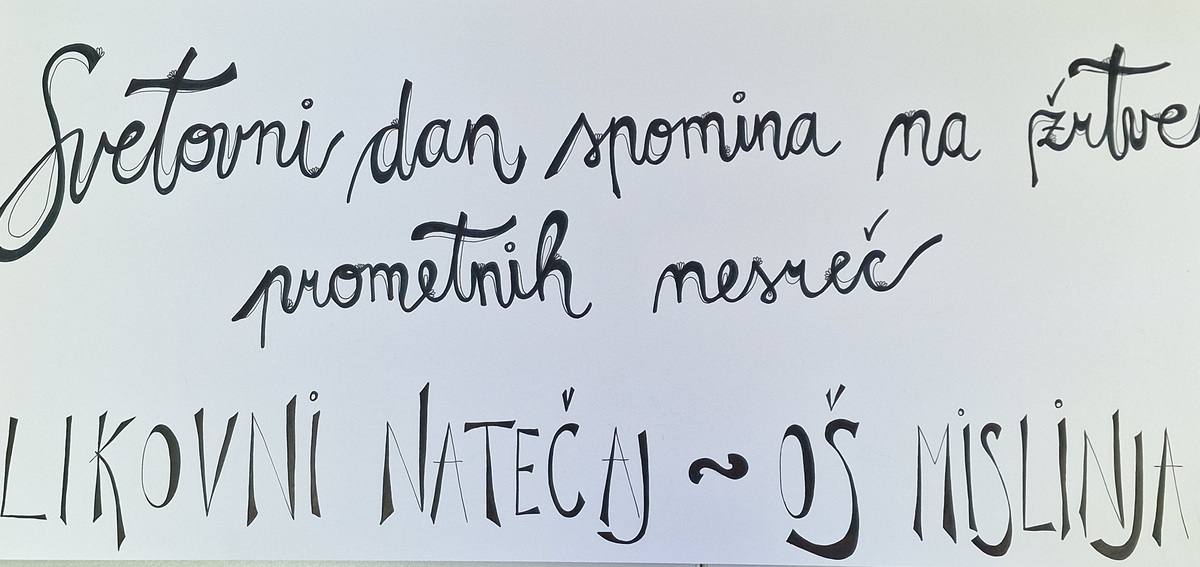 Svetovni dan spomina na žrtve
prometnih nesreč
LIKOVNI NATEČAJ ~ OŠ MISLINJA